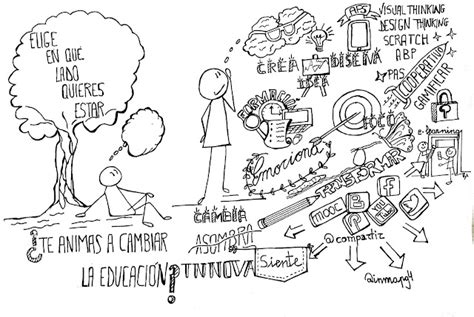 ELIGE
EN QUÉ
LADO
QUIERES
ESTAR
¿TE ANIMAS A CAMBIAR
LA EDUCACIÓN?
APS
VISUAL THINKING
DESIGN THINKING
SCRATCH
ABP
PAS
COOPERATIVO
GAMIFICAR
CREA
DISEÑA
IDEA
FORMACIÓN
FOCO
Emociona
TRANSFORMAR
e-learning
CAMBIA
ASOMBRA
INNOVA
Siente
MOOC
B
P
f
@compartir
@inmapg4